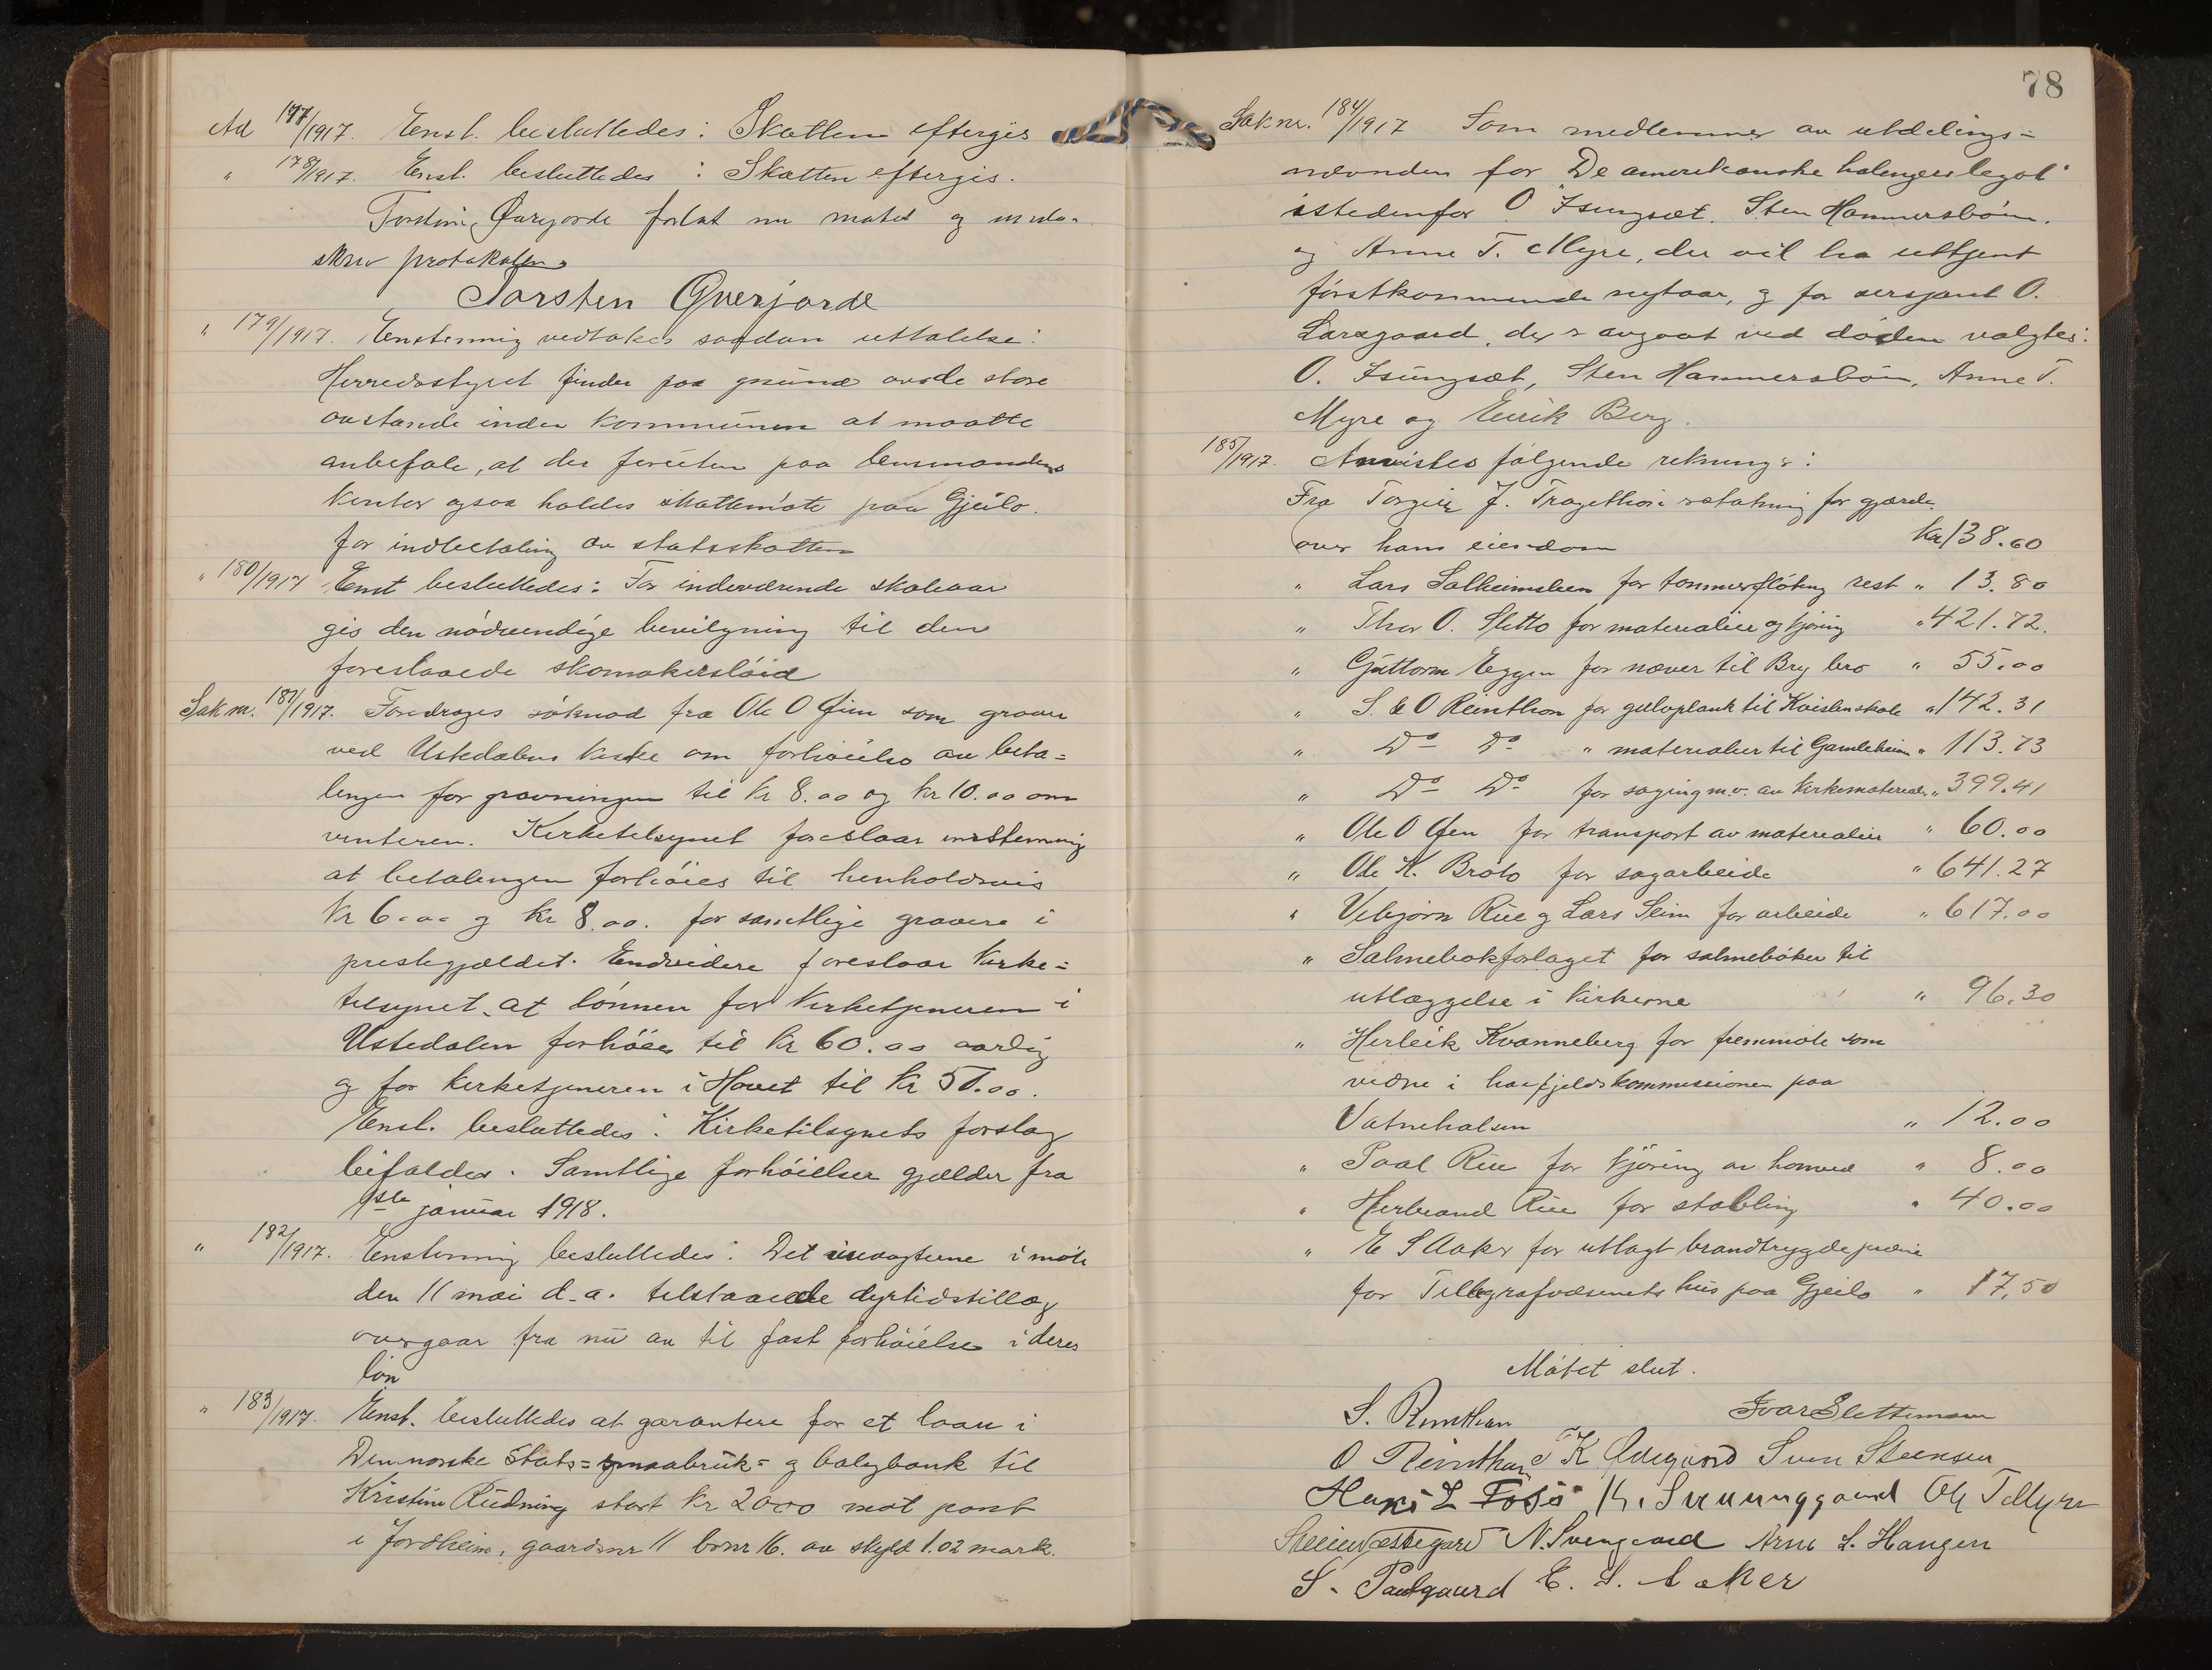 Ad 177/1917. Enst. besluttedes: Skatten eftergis
" 178/1917. Enst. besluttedes: Skatten eftergis.
Torstein Øvrejorde forlot nu møtet og under-
skrev protokollen.
Torsten Qverjorde
" 179/1917. Enstemmig vedtokes saadan uttalelse:
Herredsstyret finder paa grund av de store
avstande inden kommunen at maatte
anbefale, at der foruten paa lensmandens
kontor ogsaa holdes skattemöte paa Gjeilo.
for indbetaling av statsskatten
" 180/1917 Enst besluttedes: For indeværende skoleaar
gis den nödvendige bevilgning til den
foreslaaede skomakerslöid
Sak nr. 181/1917. Foredroges söknad fra Ole O Öien som graver
ved Ustedalens kirke om forhöielse av beta=
lingen for gravningen til kr 8.00 og kr 10.00 om
vinteren. Kirketilsynet foreslaar enstemmig
at betalingen forhöies til henholdsvis
kr 6.00 og kr 8.00. for samtlige gravere i
prestegjældet. Endvidere foreslaar kirke=
tilsynet at lönnen for kirketjeneren i
Ustedalen forhöies til kr 60.00 aarlig
og for kirketjeneren i Hovet til kr 50.00.
Enst. besluttedes: Kirketilsynets forslag
bifaldes. Samtlige forhöielser gjælder fra
1ste januar 1918.
" 182/1917. Enstemmig besluttedes: Det veivogterne i möte
den 11 mai d.a. tilstaaede dyrtidstillæg
overgaar fra nu av til fast forhöielse i deres
lön
" 183/1917. Enst. besluttedes at garantere for et laan i
Den norske Stats=smaabruk= og boligbank til
Kristine Rudning stort kr 2000 mot pant
i Jordheim, gaardsnr 11 brnr 16. av skyld 1.02 mark.
78
Sak nr. 184/1917 Som medlemmer av utdelings=
nævnden for "De amerikanske halingers legat"
istedenfor O Isungset. Sten Hammersböen.
og Anne T. Myre, der vil ha uttjent
förstkommende nytaar, og for sersjant O.
Laragaard, der er avgaat ved döden valgtes:
O. Isungset, Sten Hammersböen, Anne T.
Myre og Eirik Berg.
185/1917. Anvistes følgende rekninger:
Fra Torgeir J. Tragethon erstatning for gjærde
over hans eiendom kr 138.60
" Lars Solheimslien for tømmerflötning rest " 13.80
" Thor O. Sletto for materialier og kjöring " 421.72.
" Guttorm Eggen for næver til Bry bro " 55.00
" S. & O Reinthon for gulvplank til Kvislen skole " 142.31
" Do Do " materialier til Gamleheim " 113.73
" Do Do for saging m.v. av kirkematerialer " 399.41
" Ole O Öien for transport av materialier " 60.00
" Ole K. Bröto for sagarbeide " 641.27
" Vebjörn Rue og Lars Slim for arbeide " 617.00
" Salmebokforlaget for salmeböker til
utlæggelse i kirkerne " 96.30
" Herleik Kvanneberg for fremmöte som
vidne i höifjeldskommissionen paa
Vatnehalsen " 12.00
" Paal Rue for kjöring av honved " 8.00
" Herbrand Rue for stabling " 40.00
" E S Aaker for utlagt brandtrygdepræmie
for Tellegrafvæsenets hus paa Gjeilo " 17,50
Mötet slut.
S. Reinthon Ivar Slettemoen
O Reinthon T K Ødegaard Sven Steensen
Hans L Foss K. Svenunggaard Ole T Myre
Steien Vestegard N. Svengaard Arne L. Haugen
S. Paulgaard E. S. Aaker